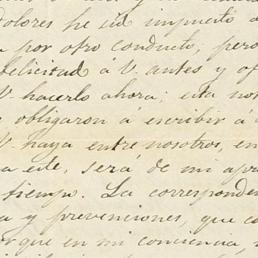 Dolores he sid impuesto d
a por otro conducto; pero
felicitad á V antes y of
V hacerlo ahora; esta no
obligaron a escribir á
V haya entre nosotros, en
a este, será de mi apr
tiempo. La corresponden
a y prevenciones, que co
orque en mi conciencia,